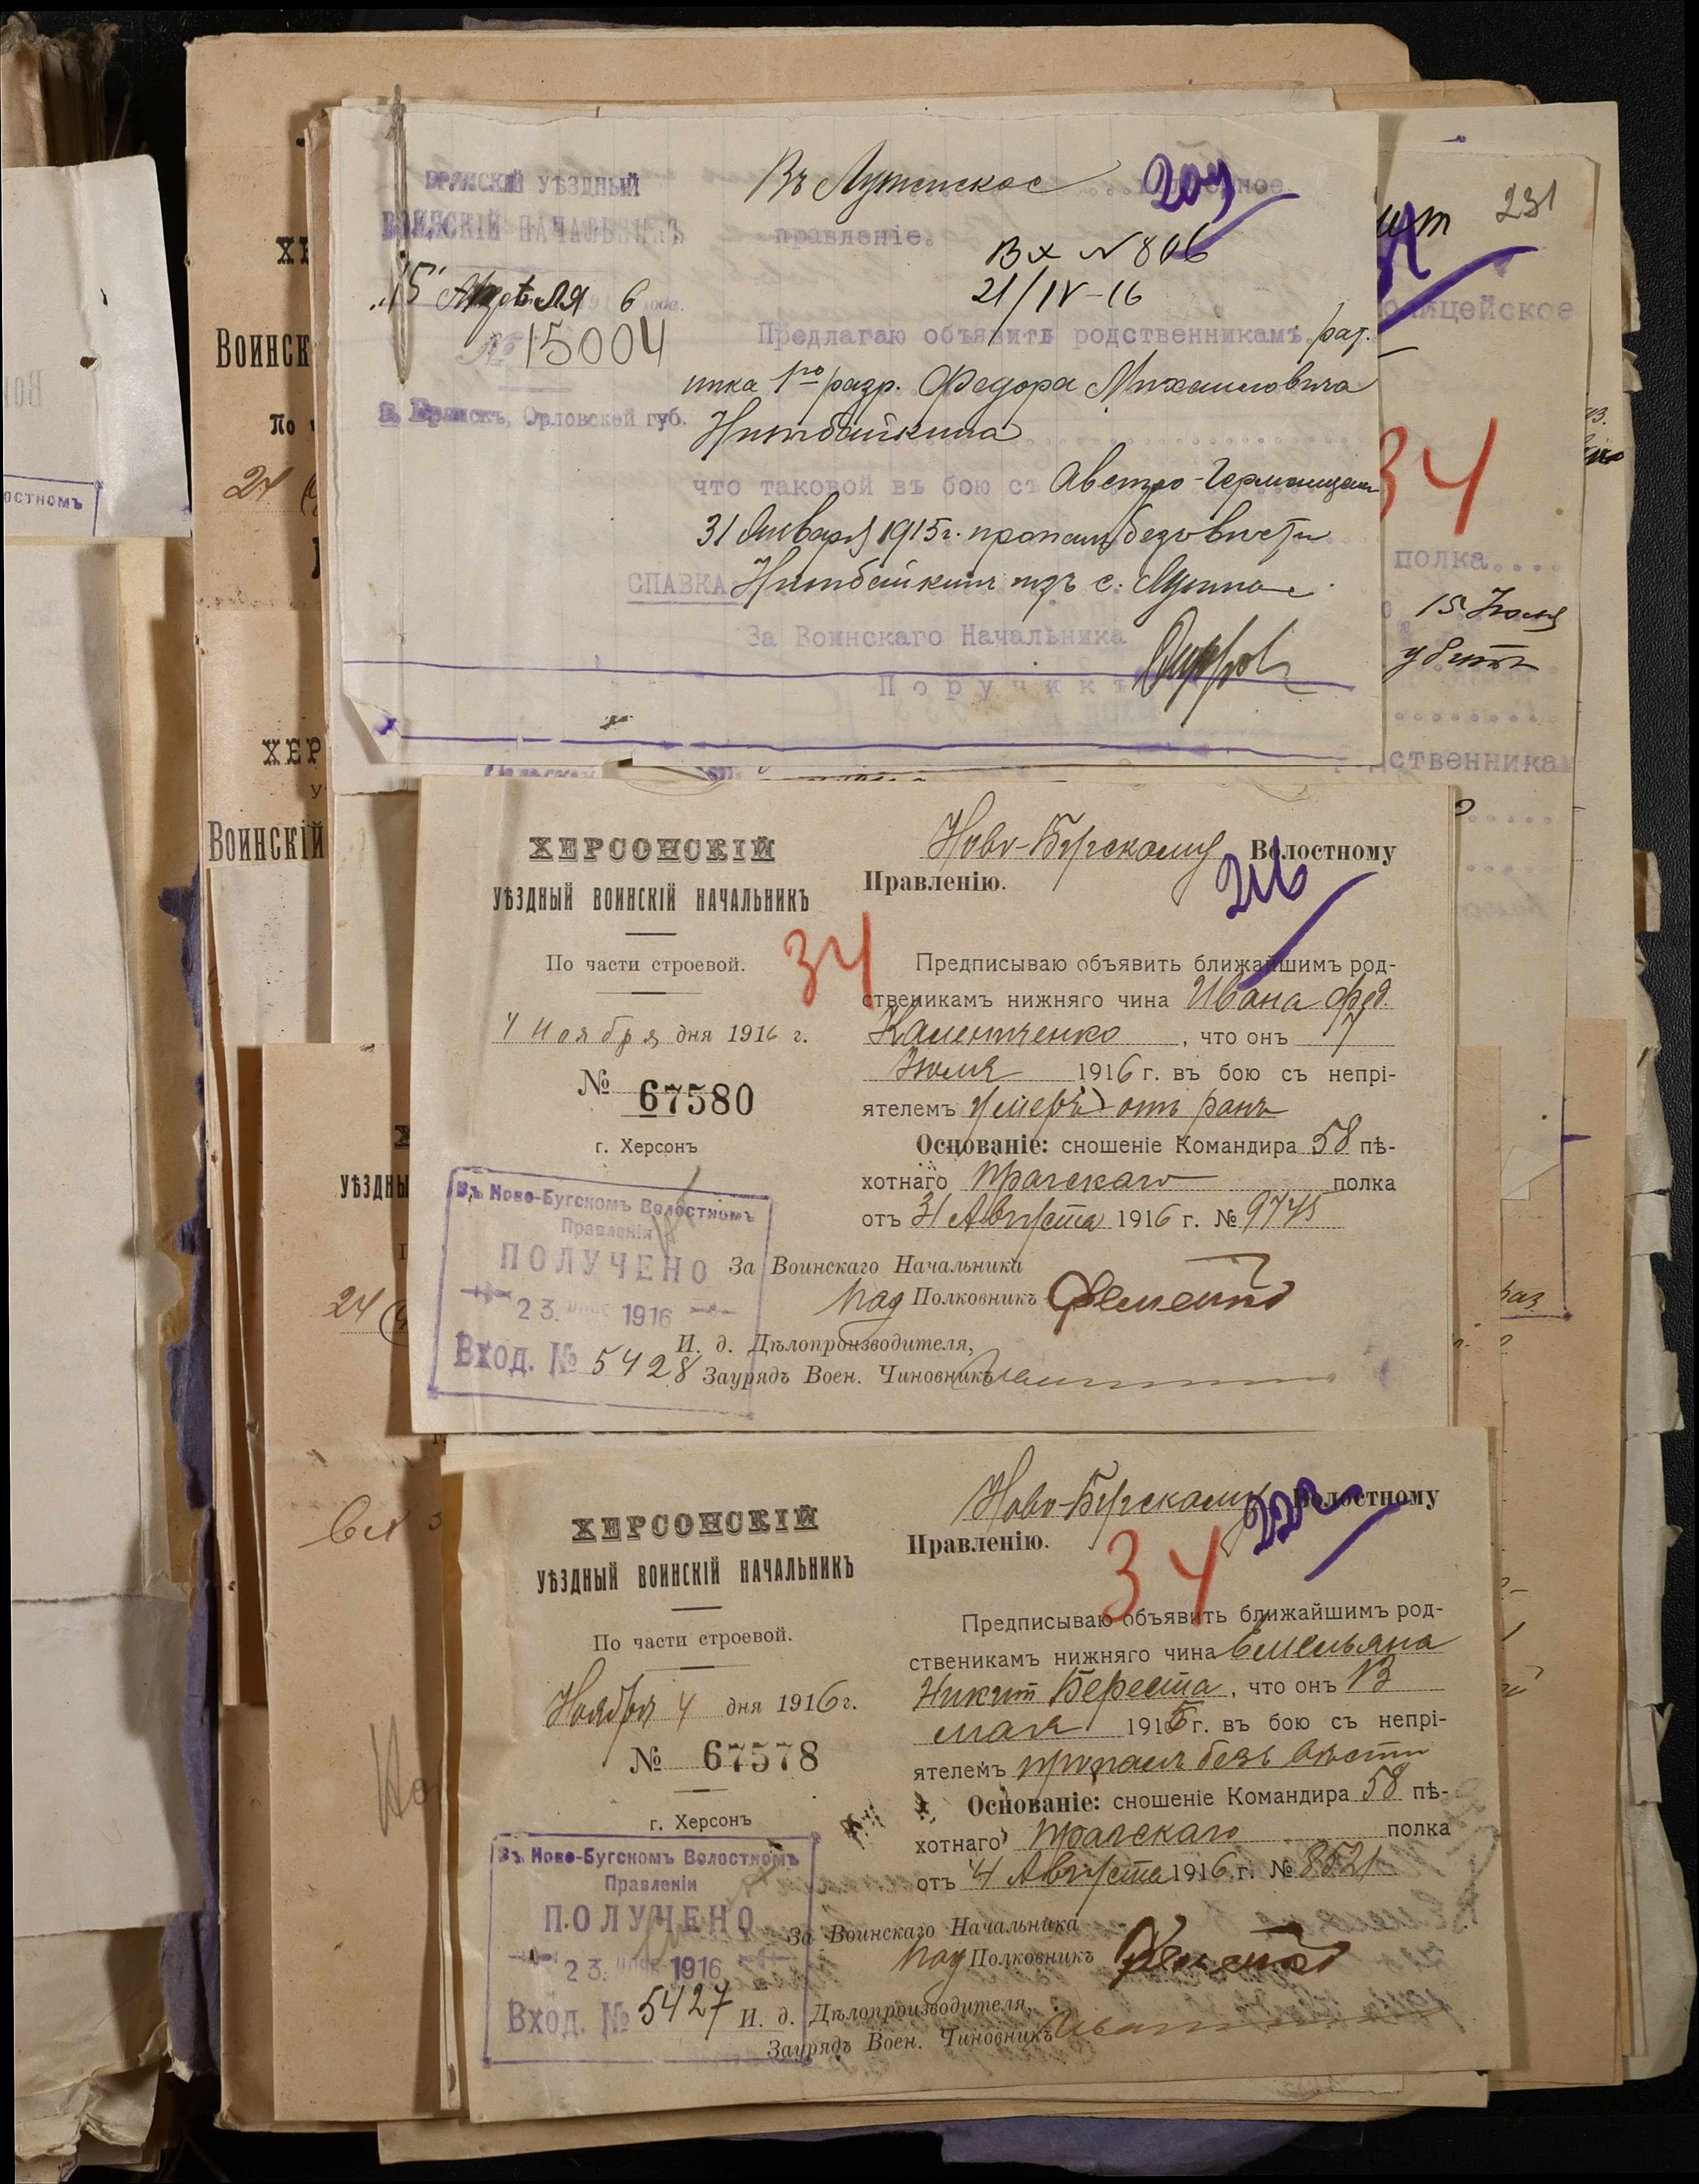 БРЯНСКІЙ УѢЗДНЫЙ
ВОИНСКІЙ НАЧАЛЬНИКЪ
15 Апрѣля 1916 года.
№ 15004
г. Брянскъ, Орловской губ.
Въ
209
правленіе.
Вх № 806
21/IV-16
Предлагаю объявить родственникамъ рат-
ника 1го разр. Федора Михаиловича
Нитбайкина
что таковой въ бою съ Австро-Германцами
31 Января 1915г. пропалъ безъ вѣсти
СПАВКА Нитбайкинъ изъ с.
За Воинскаго Начальника
Поручикъ
231
олицейское
34
полка....
15 Іюля
убитъ
дственникам
ХЕ
Воинск
По ч
24
ХЕР
У
Воинскій
остномъ
ХЕРСОНСКІЙ
УѢЗДНЫЙ ВОИНСКІЙ НАЧАЛЬНИКЪ
По части строевой.
34
4 Ноября дня 1916 г.
№ 67580
г. Херсонъ
Ново-Бугскому Волостному
216
Правленію.
Предписываю объявить ближайшимъ род-
ственикамъ нижняго чина Ивана Фед.
Калениченко, что онъ 17
Іюля 1916 г. въ бою съ непрі-
ятелемъ умеръ отъ ранъ
Основаніе: сношеніе Командира 58 пѣ-
хотнаго Прагскаго полка
отъ 31 Августа 1916 г. № 9745
Въ Ново-Бугскомъ Волостномъ
Правленіи
ПОЛУЧЕНО
23 1916
Вход. № 5428
За Воинскаго Начальника
Под Полковникъ
И. д. Дѣлопроизводителя,
Заурядъ Воен. Чиновникъ
УѢЗДНЫ
24
Вх
ХЕРСОНСКІЙ
УѢЗДНЫЙ ВОИНСКІЙ НАЧАЛЬНИКЪ
По части строевой.
Ноября 4 дня 1916 г.
№ 67578
г. Херсонъ
Ново-Бугскому Волостному
222
Правленію.
34
Предписываю объявить ближайшимъ род-
ственикамъ нижняго чина Емельяна
Никит Береста, что онъ 13
мая 1915 г. въ бою съ непрі-
ятелемъ пропалъ безъ вѣсти
Основаніе: сношеніе Командира 58 пѣ-
хотнаго Прагскаго полка
отъ 4 Августа 1916 г. № 8521
Въ Ново-Бугскомъ Волостномъ
Правленіи
ПОЛУЧЕНО
23 1916
Вход. № 5427
За Воинскаго Начальника
Под Полковникъ
И. д. Дѣлопроизводителя,
Заурядъ Воен. Чиновникъ